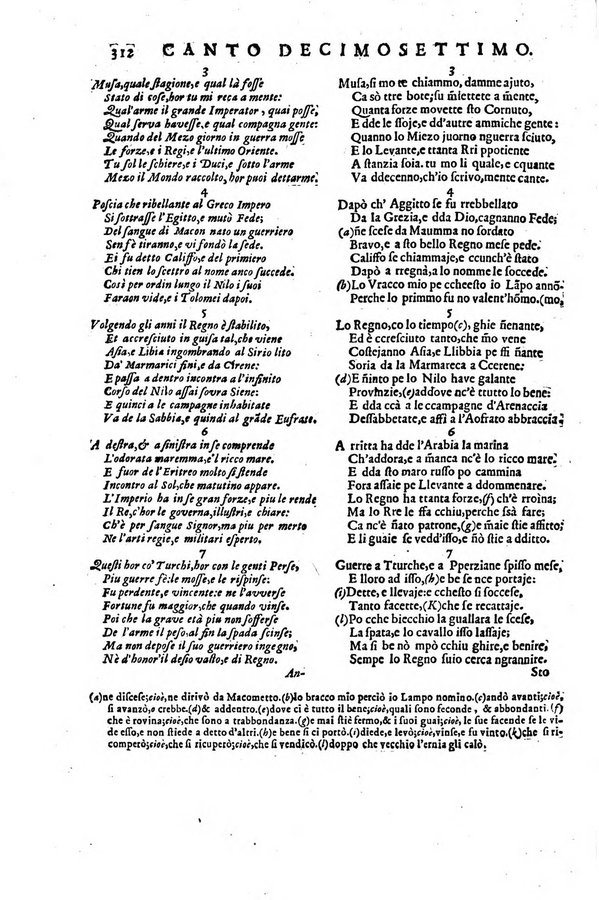 312 CANTO DECIMOSETTIMO.
3
Musa,quale stagione,e qual là fosse
Stato di cose,hor tu mi reca a mente:
Qual'arme il grande Imperator, quai posse,
Qual serva havesse,e qual compagna gente:
Quando del Mezo giorno in guerra mosse
Le forze,e i Regi,e l'ultimo Oriente.
Tu sol le schiere,e i Duci,e sotto l'arme
Mezo il Mondo raccolto, hor puoi dettarme.
4
Poscia che ribellante al Greco Impero
Si sottrasse l'Egitto,e mutò Fede;
Del sangue di Macon nato un guerriero
Sen fè tiranno,e vi fondò la sede.
Ei fu detto Califfo,e del primiero
Chi tien lo scettro al nome anco succede.
Così per ordin lungo il Nilo i suoi
Faraon vide,e i Tolomei dapoi.
5
Volgendo gli anni il Regno è stabilito,
Et accresciuto in guisa tal,che viene
Asia,e Libia ingombrando al Sirio lito
Da' Marmarici fini,e da Cirene:
E passa a dentro incontra a l'infinito
Corso del Nilo assai sovra Siene:
E quinci a le campagne inhabitate
Va de la Sabbia,e quindi al grande Eufrate.
6
A destra,& a sinistra in se comprende
L'odorata maremma,e'l ricco mare.
E fuor de l'Eritreo molto si stende
Incontro al Sol,che matutino appare.
L'Imperio ha in se gran forze,e piu le rende
Il Re,c'hor le governa,illustri,e chiare:
Ch'è per sangue Signor,ma piu per merto
Ne l'arti regie,e militari esperto.
7
Questi hor co' Turchi, hor con le genti Perse,
Piu guerre fè:le mosse,e le rispinse:
Fu perdente,e vincente:e ne l'avverse
Fortune,fu maggior,che quando vinse.
Poi che la grave età piu non sofferse
De l'arme il peso,al fin la spada scinse;
Ma non depose il suo guerriero ingegno,
Nè d'honor'il desio vasto,e di Regno.
An-
3
Musa,si mo te chiammo, damme ajuto,
Ca sò tre bote;su m̃iettete a m̃ente,
Quanta forze movette sto Cornuto,
E dde le ssoje,e d'autre ammiche gente:
Quanno lo Miezo juorno nguerra sciuto,
E lo Levante,e ttanta Rri ppotiente
A stanzia soia. tu mo li quale,e cquante
Va ddecenno,ch'io scrivo,mente cante.
4
Dapò ch' Aggitto se fu rrebbellato
Da la Grezia,e dda Dio,cagnanno Fede;
(a)ñe scese da Maumma no sordato
Bravo,e a sto bello Regno mese pede.
Califfo se chiammaje,e ccunch'è stato
Dapò a rregnà,a lo nomme le soccede.
(b)Lo Vracco mio pe ccheesto io Lãpo annõ-
Perche lo primmo fu no valent'hõmo.(mo,
5
Lo Regno,co lo tiempo(c), ghie ñenante,
Ed è ccresciuto tanto,che mmo vene
Costejanno Asia,e Llibbia pe ffi ñante
Soria da la Marmareca a Ccerene:
(d)E ñinto pe lo Nilo have galante
Provinzie,(e)addove nc'è ttutto lo bene:
E dda ccà a le ccampagne d'Arenaccia
Dessabbetate,e affi a l'Aofrato abbraccia:
6
A tritta ha dde l'Arabia la marina
Ch'addora,e a manca nc'è lo ricco mare.
E dda sto maro russo po cammina
Fora assaje pe Llevante a ddommenare.
Lo Regno ha ttanta forze,(f) ch'è rroina;
Ma lo Rre le ffa chiù,perche ssà fare;
Ca nc'è ñato patrone,(g)m̃aie stie affitto;
E li guaie se vedd'isso,e ñò stie a ditto.
7
Guerre a Tturche,e a Pperziane spisso mese,
E lloro ad isso,(h)e be se nce portaje:
(i)Dette,e llevaje:e cchesto si soccese,
Tanto facette,(K)che se recattaje.
(l)Po cche biecchio la guallara le scese,
La spata,e lo cavallo isso lassaje;
Ma si be nò mpò cchiu ghire,e benire,
Sempe lo Regno suio cerca ngrannire.
Sto
(a)ne discese;cioè,ne dirivò da Macometto.(b)lo bracco mio perciò io Lampo nomino.(c)andò avanti;cioè,
si avanzò,e crebbe.(d)& addentro.(e)dove ci è tutto il bene;cioè,quali sono feconde, & abbondanti.(f)
che è rovina;cioè,che sono a trabbondanza.(g)e mai stiè fermo,& i suoi guai;cioè, le sue facende se le vi-
de esso,e non stiede a detto d'altri.(h)e bene si ci portò.(i)diede,e levò;cioè,vinse,e fu vinto.(k)che si ri-
comperò;cioè,che si ricuperò;cioè,che si vendicò.(l)doppo che vecchio l'ernia gli calò.